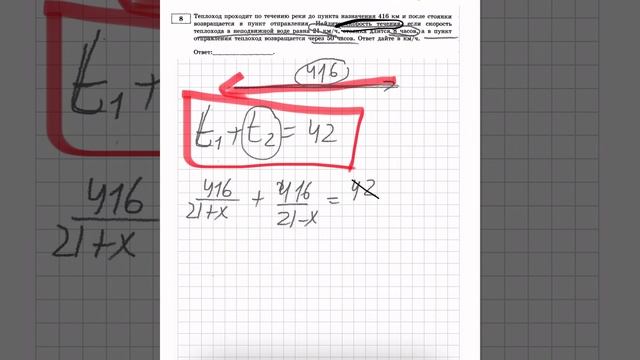 8 Теплоход проходит по течению реки до пункта назначения 416 км и после стоянки
возвращается в пункт отправления. Найдите скорость течения, если скорость
теплохода в неподвижной воде равна 21 км/ч, стоянка длится 8 часов, а в пункт
отправления теплоход возвращается через 50 часов. Ответ дайте в км/ч.
Ответ:
416
t₁ + t₂ = 42
416/21+x + 416/21-x = 42